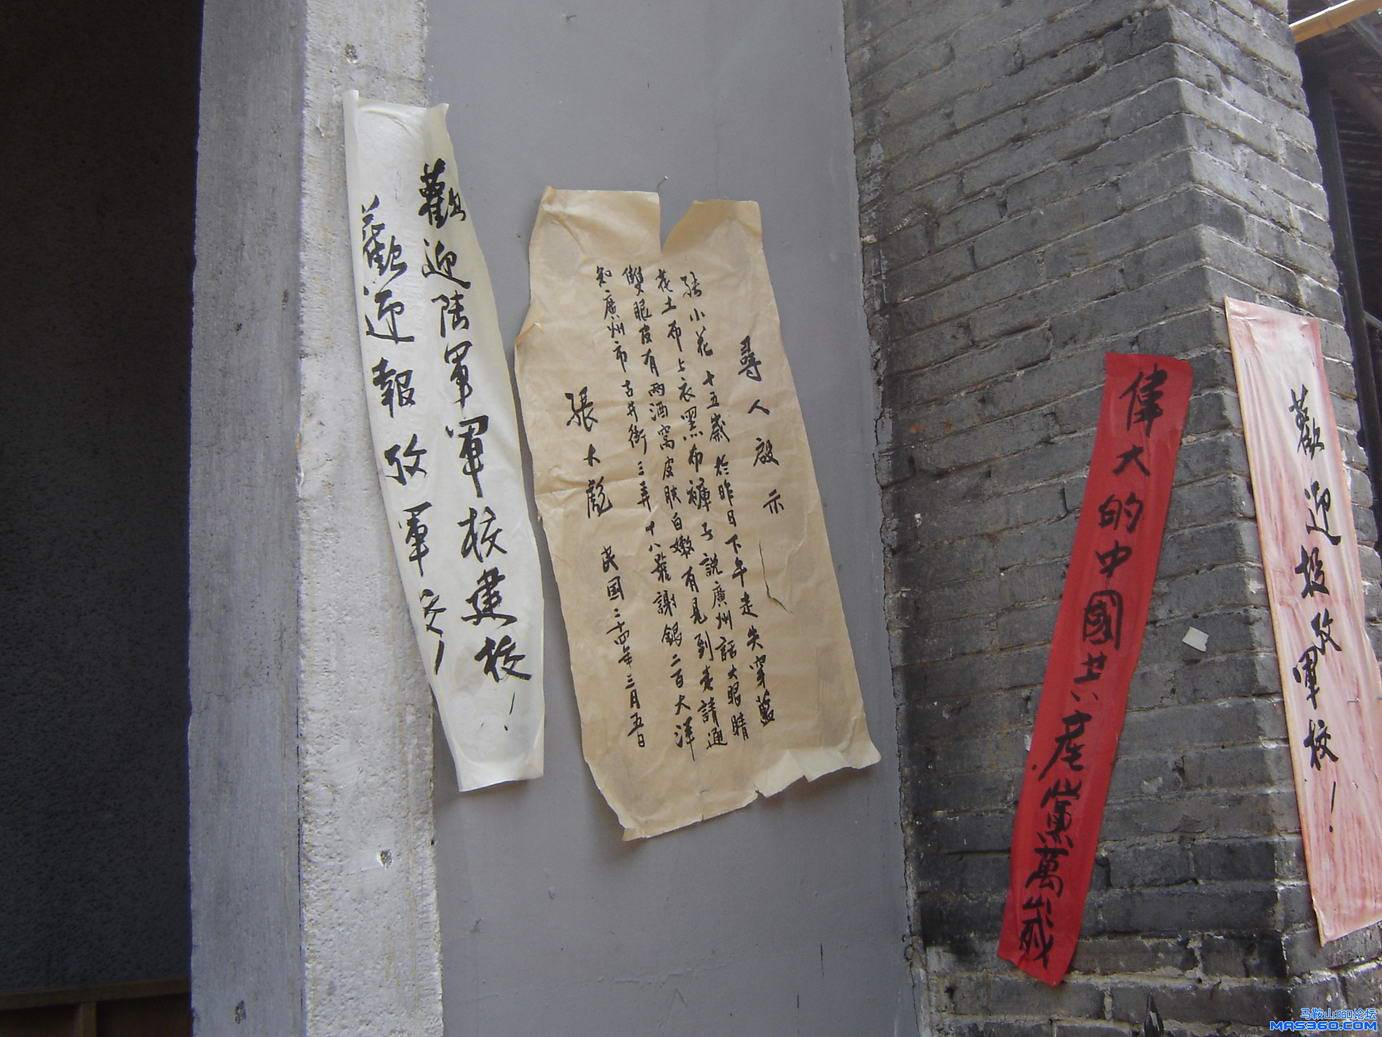 歡迎陸軍軍校建校！
歡迎報攷軍校！
尋人啟示
張小花十五歲於昨日下午走失穿藍
花土布上衣黑布褲子說廣州話大眼睛
雙眼皮有兩酒窩皮肤白嫩有見到者請通
知廣州市古井街三弄十八號謝錫二百大洋
張大彪
民国二十四年三月五日
偉大的中國共產黨萬歲
歡迎投攷軍校！
马鞍山360论坛
MAS360.COM